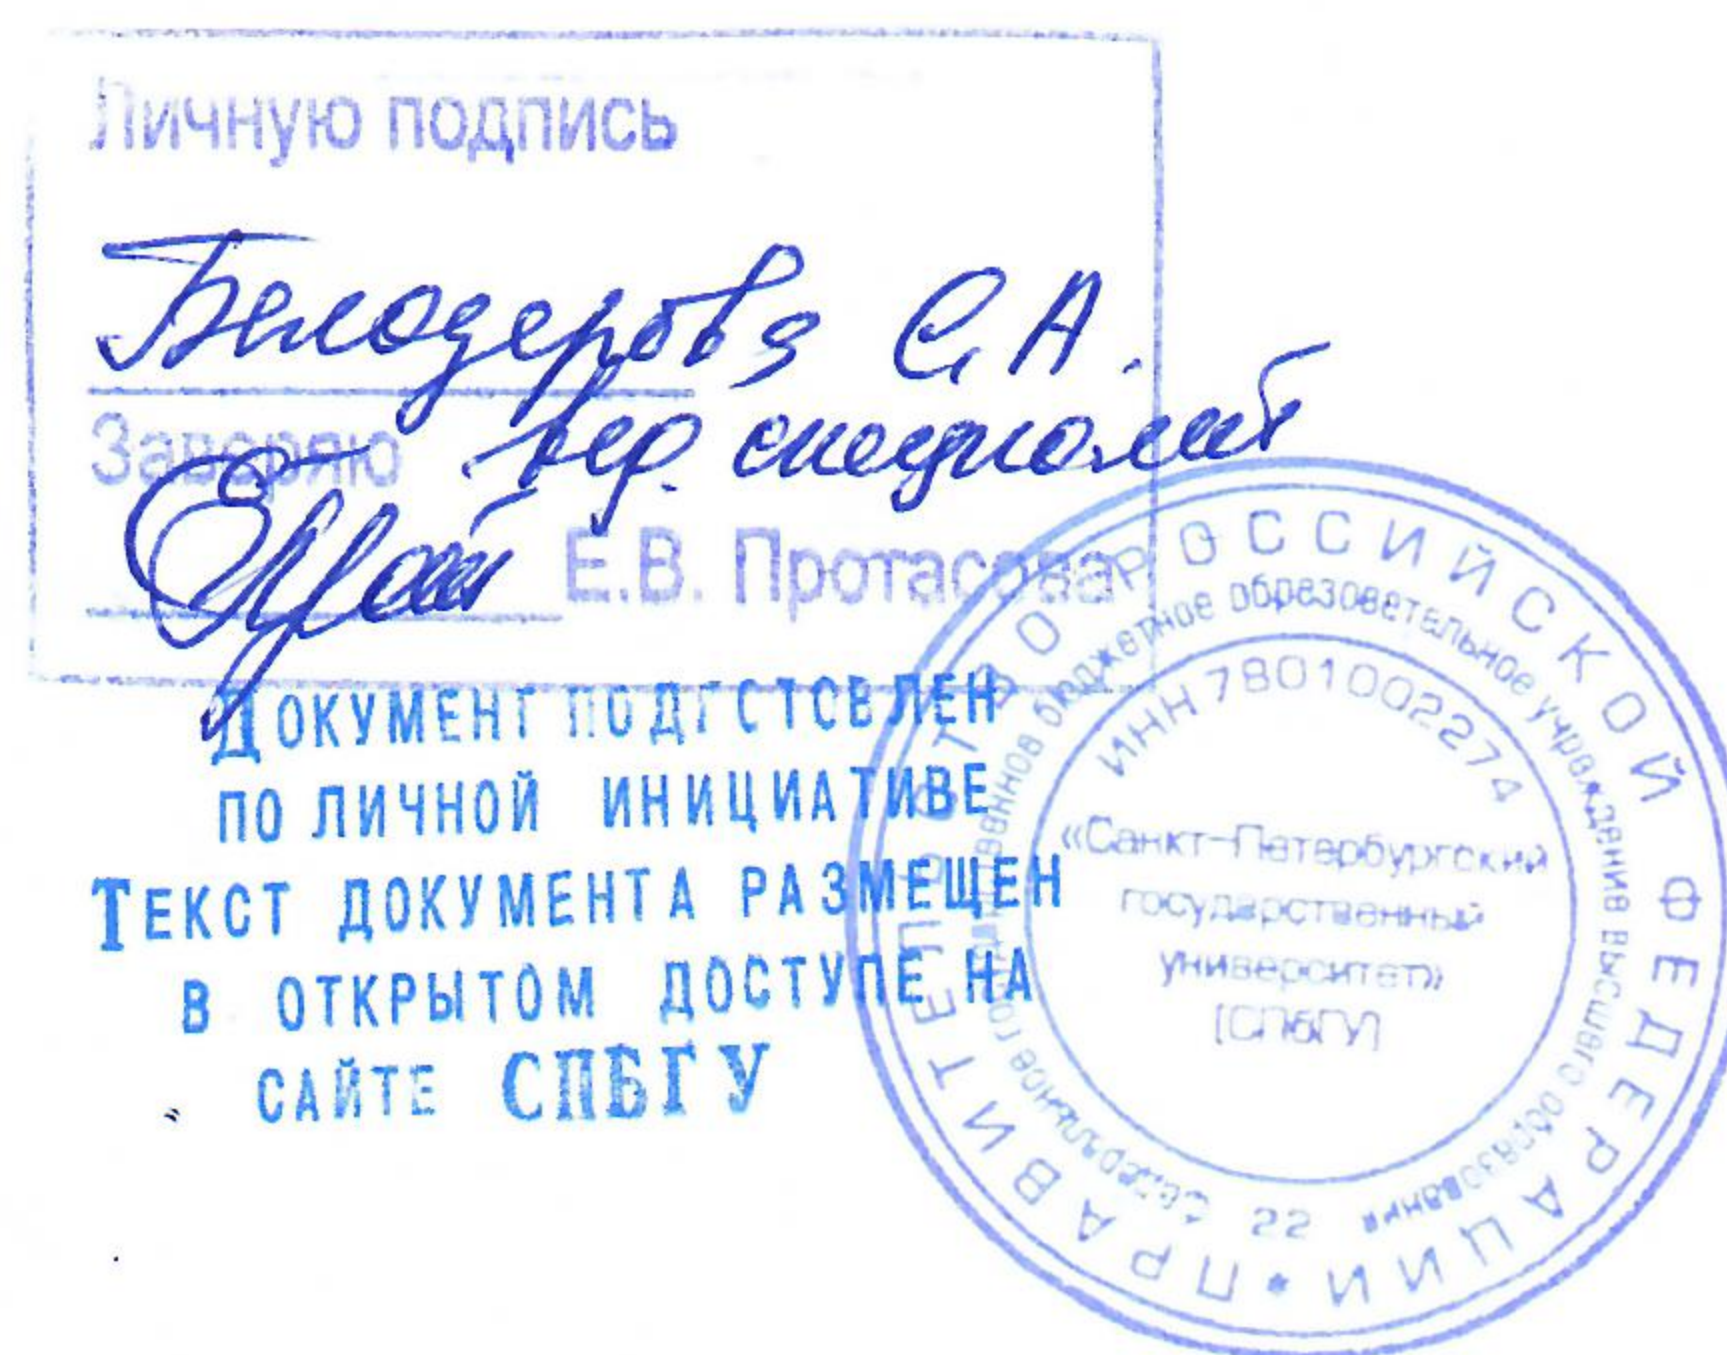 Личную подпись
Белодедова С.А.
Заверяю вед. специалист
Е.В. Протасова
ДОКУМЕНТ ПОДГОТОВЛЕН
ПО ЛИЧНОЙ ИНИЦИАТИВЕ
ТЕКСТ ДОКУМЕНТА РАЗМЕЩЕН
В ОТКРЫТОМ ДОСТУПЕ НА
САЙТЕ СПБГУ
ПРАВИТЕЛЬСТВО РОССИЙСКОЙ ФЕДЕРАЦИИ •
Федеральное государственное бюджетное образовательное учреждение высшего образования
22
ИНН 7801002274
«Санкт-Петербургский
государственный
университет»
[СПбГУ]